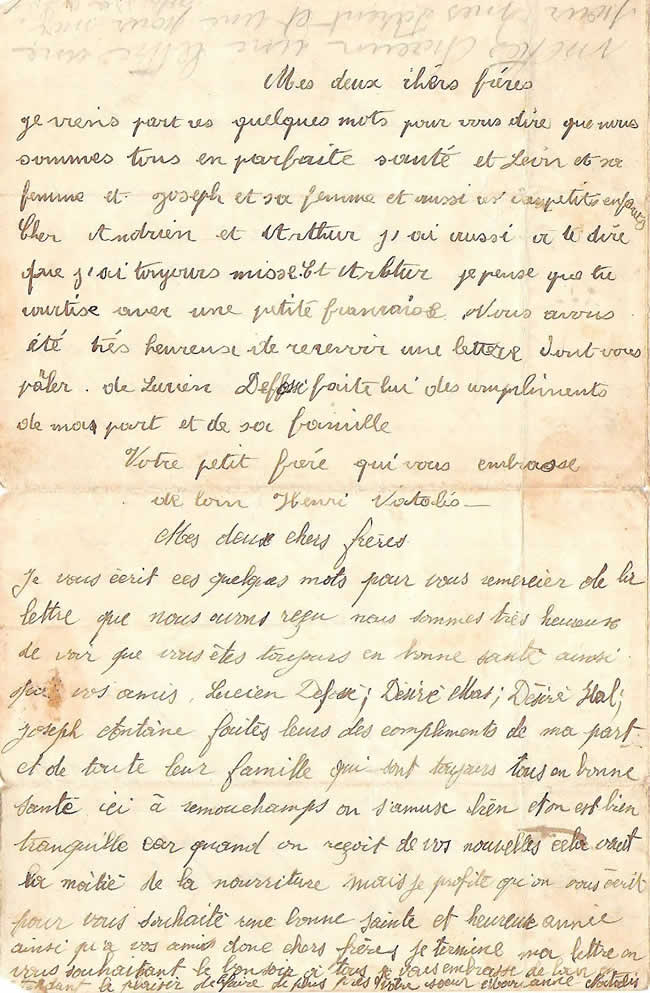 Mes deux chérs fréres
je viens part ses quelques mots pour vous dire que nous
sommes tous en parfaite santé et Léon et sa
femme et joseph et sa femme et aussi petits enfants
Cher Andrien et Arthur j'ai aussi a te dire
que j'ai toujours misse. Et Arthur je pense que tu
courtise avec une petite francaise. Nous avons
été trés heureuse de recevoir une lettere dont vous
pâler. de Lucien faite lui des compliments
de mas part et de sa famille
Votre petit frére qui vous embrasse
de loin Henri
Mes deux chers frères
Je vous écrit ces quelques mots pour vous remercier de la
lettre que nous avons reçu nous sommes très heureuse
de voir que vous êtes toujours en bonne santé ainsi
que vos amis. Lucien Defossé; Désiré Mas; Désiré
joseph Antoine faites leurs des compliments de ma part
et de toute leur famille qui sont toujours tous en bonne
santé ici à remouchamps on s'amuse bien et on est bien
tranquille car quand on reçoit de vos nouvelles cela vaut
la moitié de la nourriture mais je profite qu'on vous écrit
pour vous souhaité une bonne sainte et heureuse année
ainsi qu'a vos amis donc chers frères je termine ma lettre en
vous souhaitant le bonsoir a tous je vous embrasse de loin en
le plaisir de de plus près Votre soeur